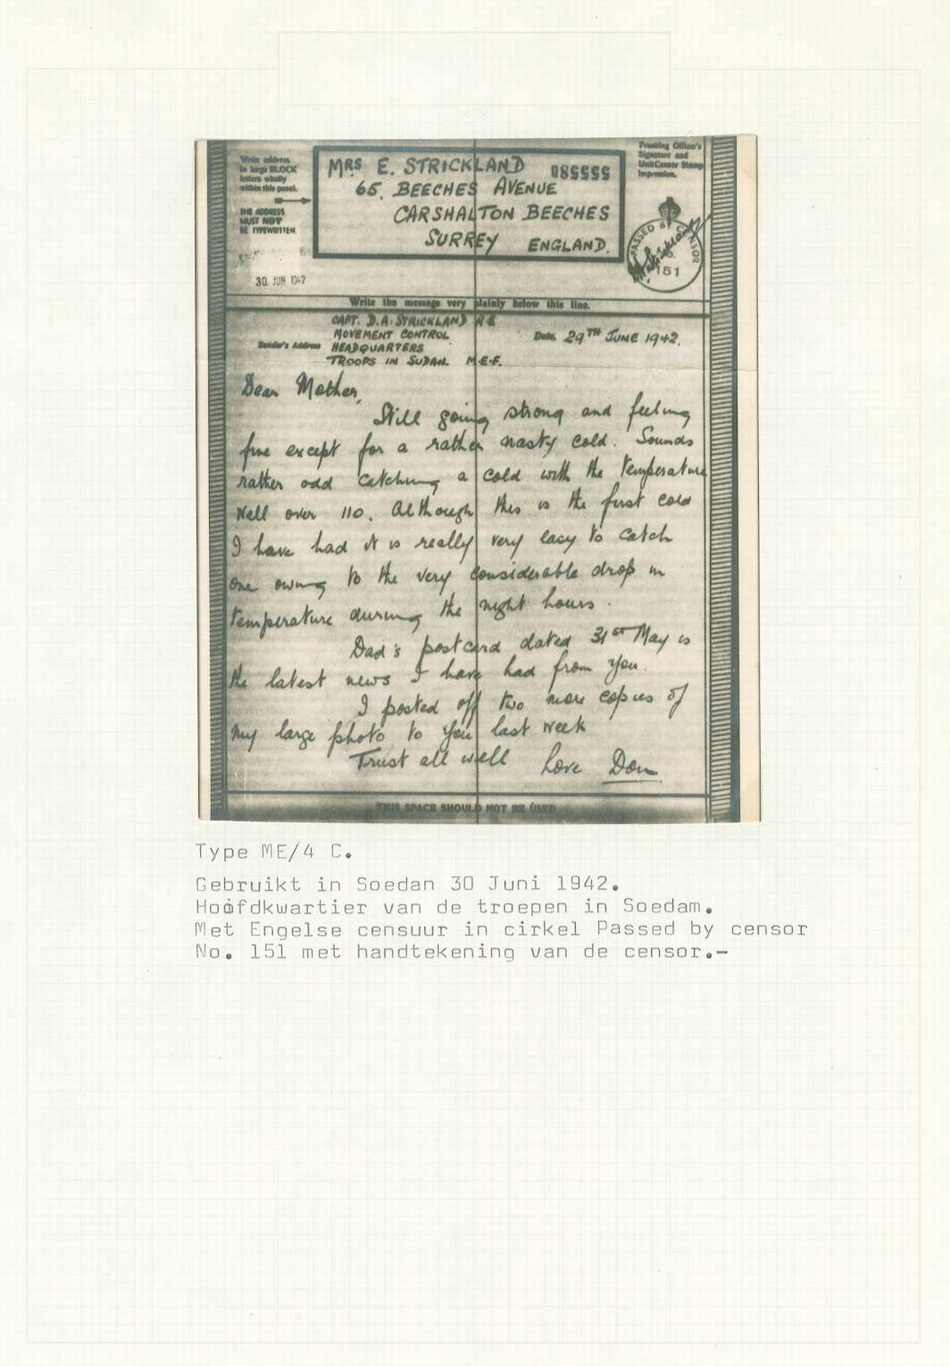 Write address
in large BLOCK
letters wholly
within this panel.
THE ADDRESS
MUST NOT
BE TYPEWRITTEN.
30 JUN 1942
MRS E. STRICKLAND
085555
65, BEECHES AVENUE
CARSHALTON BEECHES
SURREY ENGLAND.
Franking Officer's
Signature and
Unit Censor Stamp
Impression.
PASSED BY CENSOR
151
Write the message very plainly below this line.
CAPT. D.A. STRICKLAND R.E
MOVEMENT CONTROL
Sender's Address HEADQUARTERS
TROOPS IN SUDAN. M.E.F.
Date. 29TH JUNE 1942.
Dear Mother,
Still going strong and feeling
fine except for a rather nasty cold. Sounds
rather odd catching a cold with the temperature
well over 110. Although this is the first cold
I have had it is really very easy to catch
one owing to the very considerable drop in
temperature during the night hours.
Dad's postcard dated 31st May is
the latest news I have had from you.
I posted off two more copies of
my large photo to you last week
Trust all well Love Don
THIS SPACE SHOULD NOT BE USED
Type ME/4 C.
Gebruikt in Soedan 30 Juni 1942.
Hoofdkwartier van de troepen in Soedam.
Met Engelse censuur in cirkel Passed by censor
No. 151 met handtekening van de censor.-